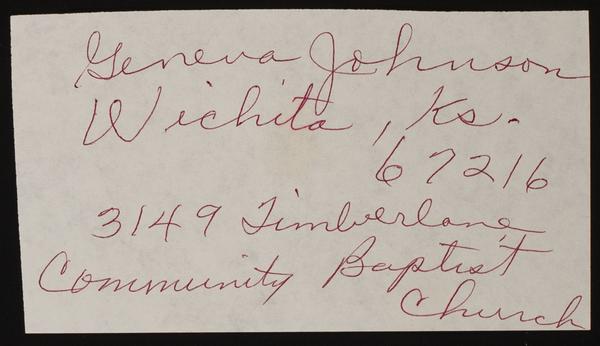 Geneva Johnson
Wichita, Ks.
67216
3149 Timberlane
Community Baptist
Church